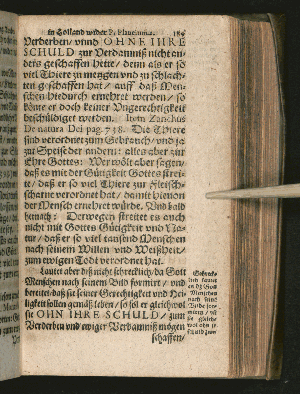 in Holland wider P. Flaucinium. 189
Verderben / vnnd OHNE IHRE
SCHULD zur Verdamniß nicht an-
ders geschaffen hette / denn als er so
viel Thiere zu mengen vnd zu schlach-
ten geschaffen hat / auff daß Men-
schen hiedurch ernehret werden / so
könte er doch keiner Vngerechtigkeit
beschüldiget werden. Item Zanchus
De natura Dei pag. 738. Die Thiere
sind verordnet zum Gebrauch / vnd ja
zur Speise der andern: alles aber zur
Ehre Gottes: Wer wolt aber sagen /
daß es mit der Gütigkeit Gottes strei-
te / daß er so viel Thiere zur Fleisch-
scharne verordnet hat / damit hievon
der Mensch ernehret würde. Vnd bald
hernach: Derwegen streitet es auch
nicht mit Gottes Gütigkeit vnd Na-
tur / daß er so viel tausend Menschen
nach seinem Willen vnd Weißheit /
zum ewigen Todt verordnet hat.
Lautet aber diß nicht schrecklich / da Gott
Menschen nach seinem Bild formirt / vnd
bereitet / daß sie seiner Gerechtigkeit vnd Hei-
ligkeit sollen gemäß leben / so sol er gleichwol
sie OHN IHRE SCHULD / zum
Verderben vnd ewiger Verdamniß mögen
schaffen /
lich lautet
Menschen
nach seine
sie gleich-
wol ohn je